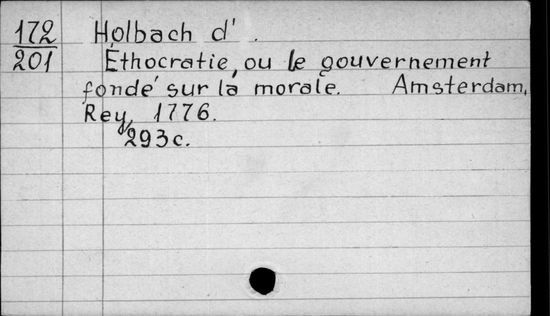 172 Holbach d'.
201 Éthocratie, ou le gouvernement
fondé sur la morale. Amsterdam,
Rey, 1776.
293c.